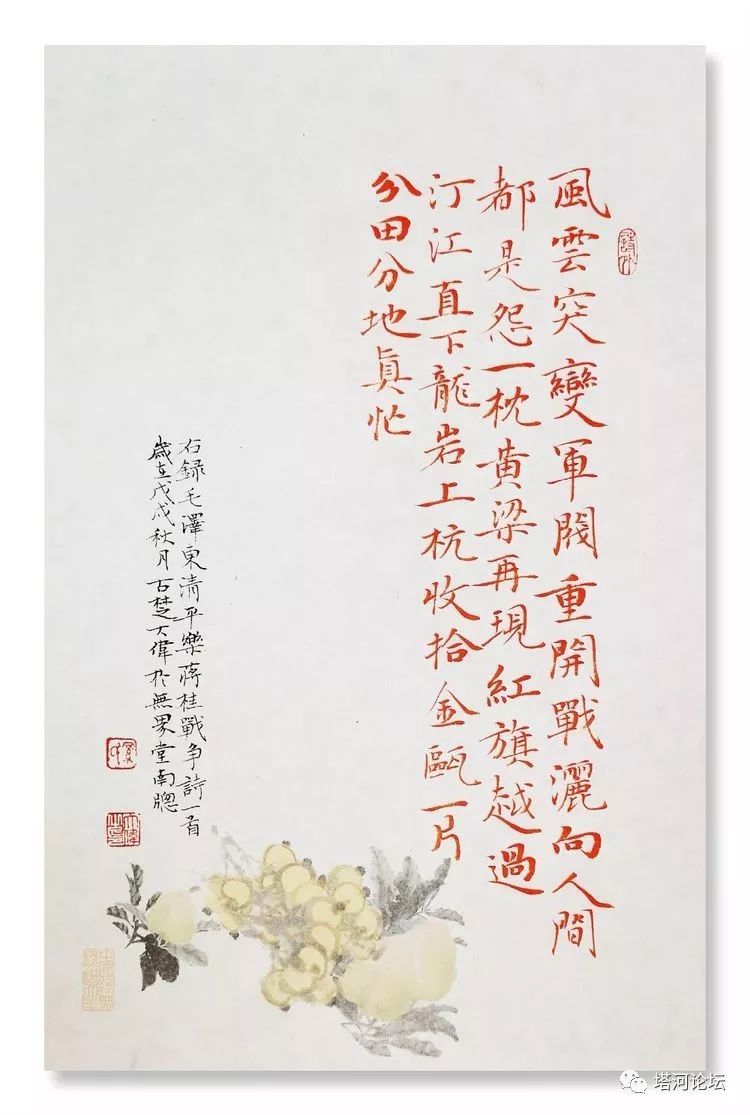 風雲突變軍閥重開戰灑向人間
都是怨一枕黄梁再現紅旗越過
汀江直下龍岩上杭收拾金甌一片
分田分地眞忙
右録毛澤東清平樂蔣桂戰争詩一首
歲在戊戌秋月石楚大偉於無界堂南牕
塔河论坛